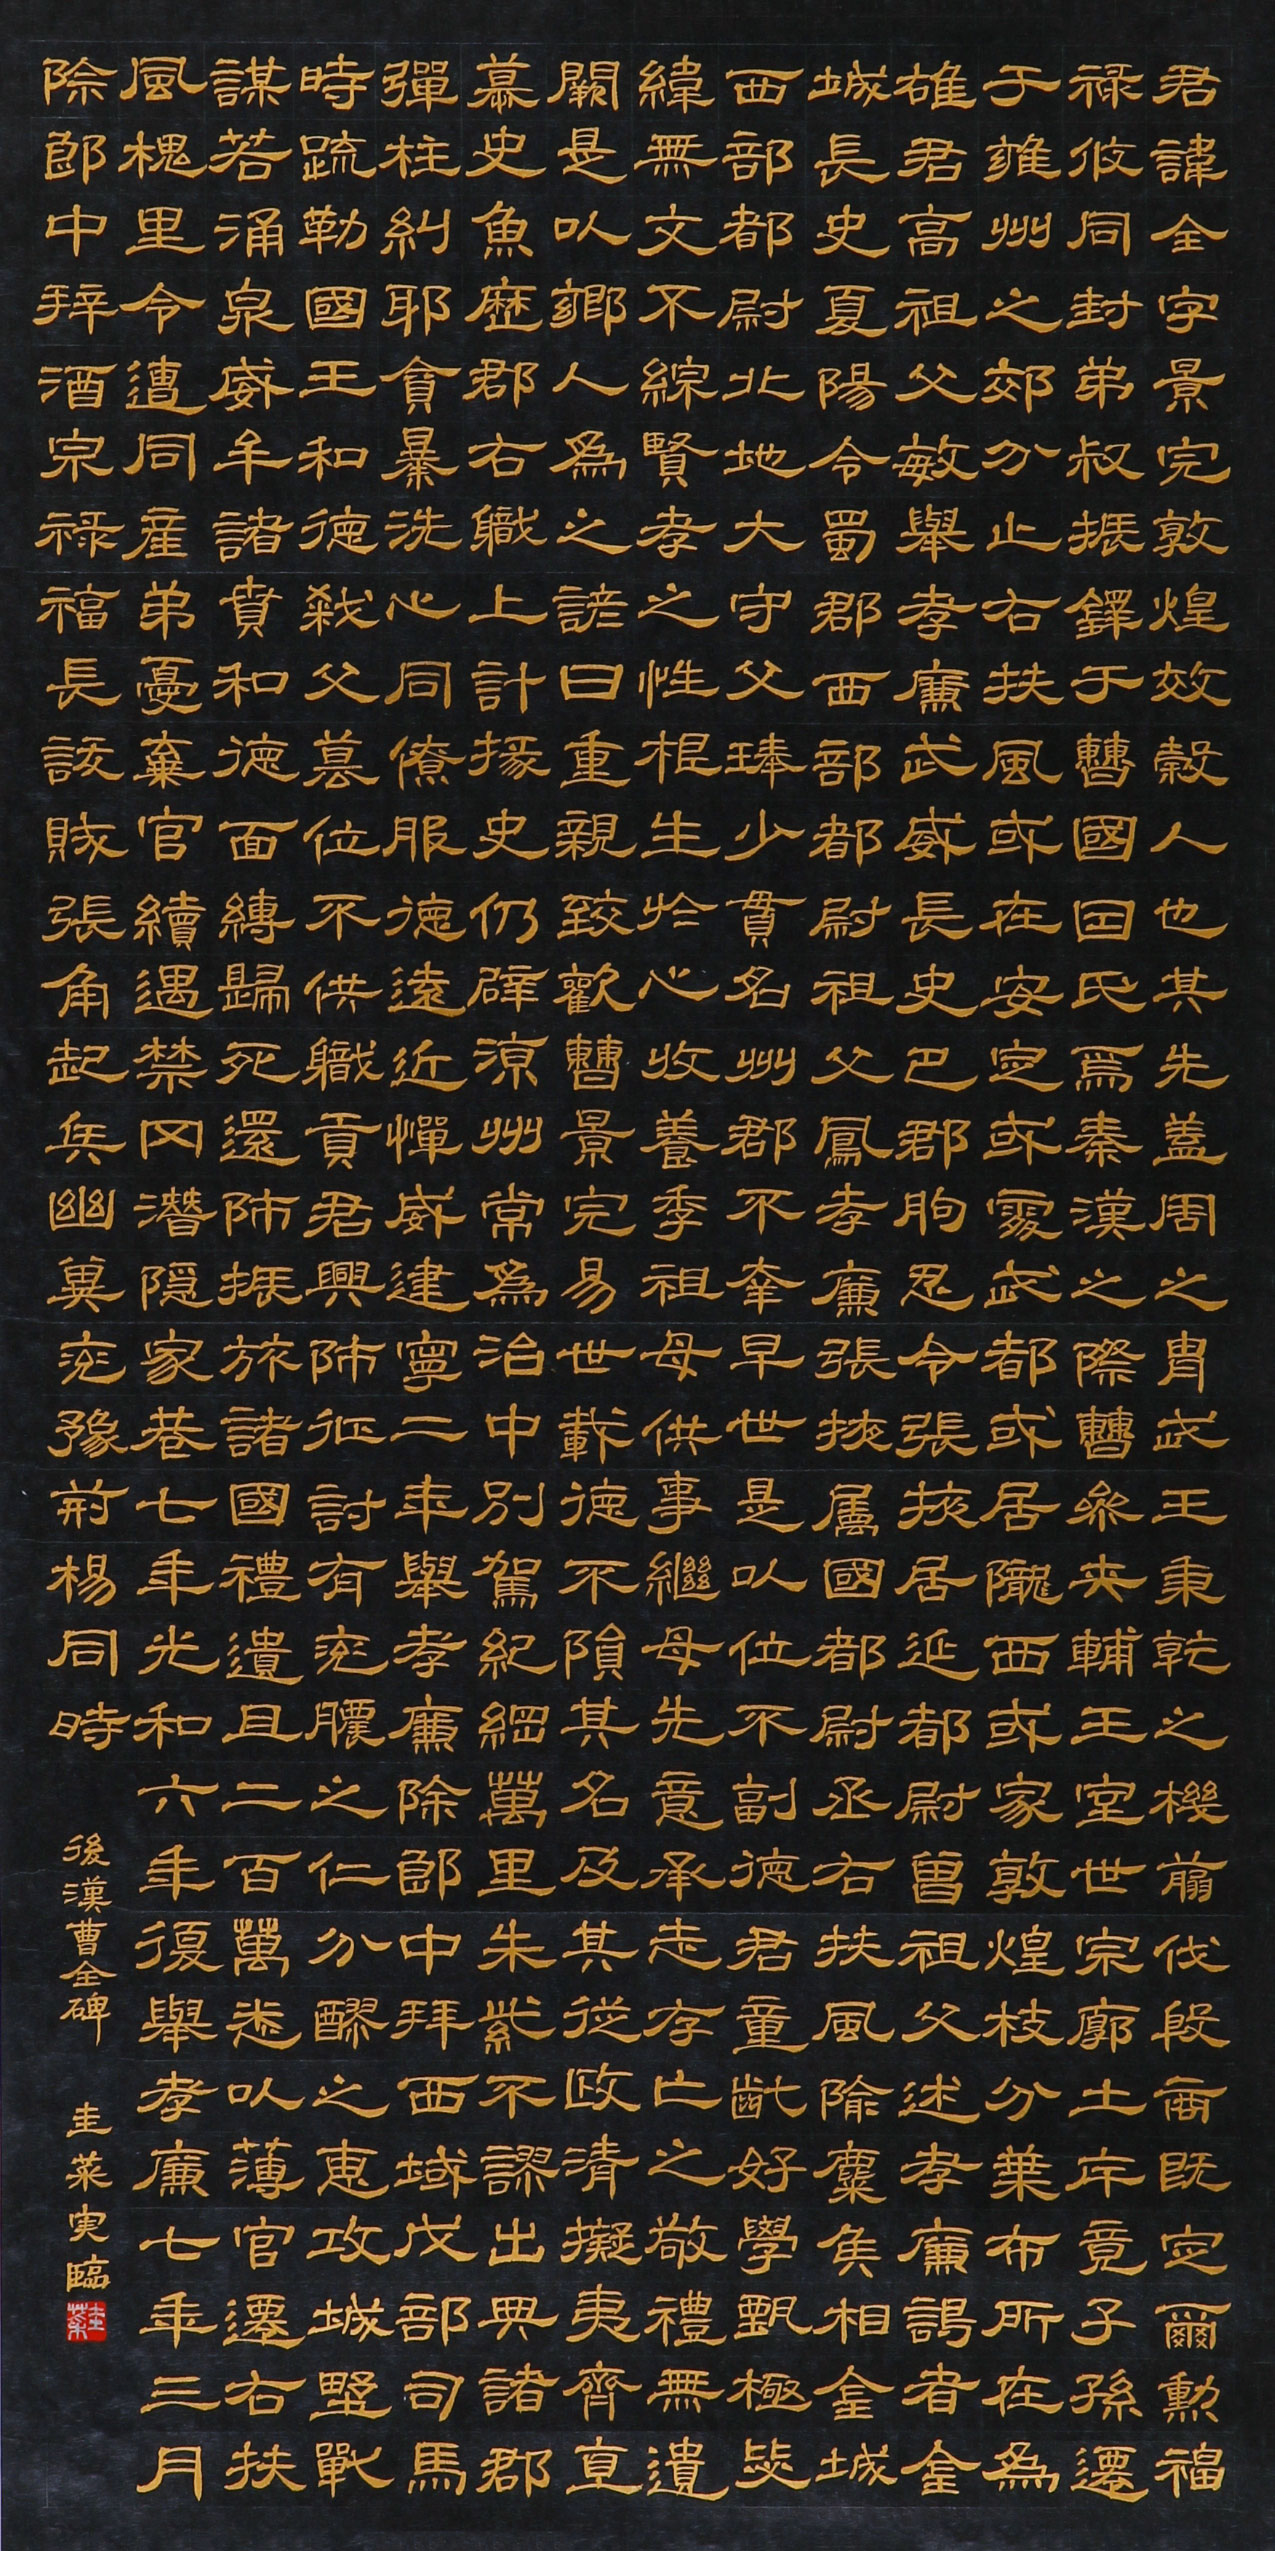 君諱全字景完敦煌效穀人也其先蓋周之胄武王秉乾之機翦伐殷商既定爾勲福
祿攸同封弟叔振鐸于曹國因氏焉秦漢之際曹參夾輔王室世宗廓土斥竟子孫遷
于雍州之郊分止右扶風或在安定或處武都或居隴西或家敦煌枝分葉布所在為
雄君高祖父敏舉孝廉武威長史巴郡朐忍令張掖居延都尉曾祖父述孝廉謁者金
城長史夏陽令蜀郡西部都尉祖父鳳孝廉張掖属國都尉丞右扶風隃麋侯相金城
西部都尉北地大守父琫少貫名州郡不幸早世是以位不副德君童齔好學甄極毖
緯無文不綜賢孝之性根生於心收養季祖母供事繼母先意承志存亡之敬禮無遺
闕是以鄉人為之諺曰重親致歡曹景完易世載德不隕其名及其從政清擬夷齊直
慕史魚歷郡右職上計掾史仍辟涼州常為治中別駕紀綱萬里朱紫不謬出典諸郡
彈枉糾邪貪暴洗心同僚服德遠近憚威建寧二年舉孝廉除郎中拜西域戊部司馬
時疏勒國王和德弒父篡位不供職貢君興師征討有兗膿之仁分醪之惠攻城野戰
謀若涌泉威牟諸賁和德面縛歸死還師振旅諸國禮遺且二百萬悉以薄官遷右扶
風槐里令遭同產弟憂棄官續遇禁网潛隱家巷七年光和六年復舉孝廉七年三月
除郎中拜酒泉祿福長訞賊張角起兵幽冀兗豫荊楊同時
後漢曹全碑 圭葉実臨
圭葉